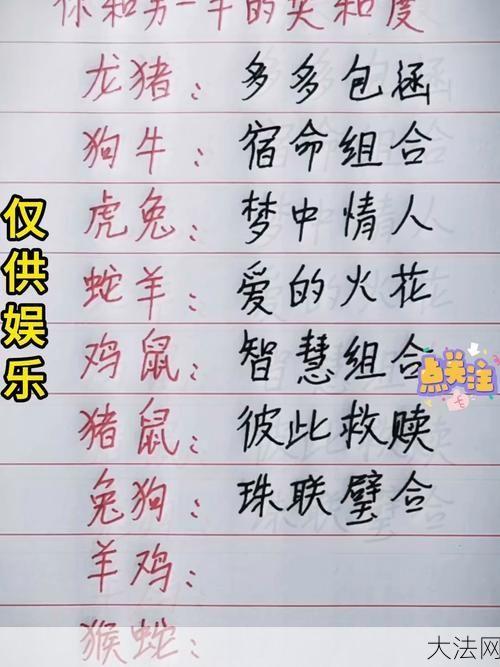 你和另一半的契和度
龙猪：多多包涵
狗牛：宿命组合
虎兔：梦中情人
蛇羊：爱的火花
鸡鼠：智慧组合
猪鼠：彼此救赎
兔狗：珠联璧合
羊鸡：
猴蛇：
仅供娱乐
点关注
大法网